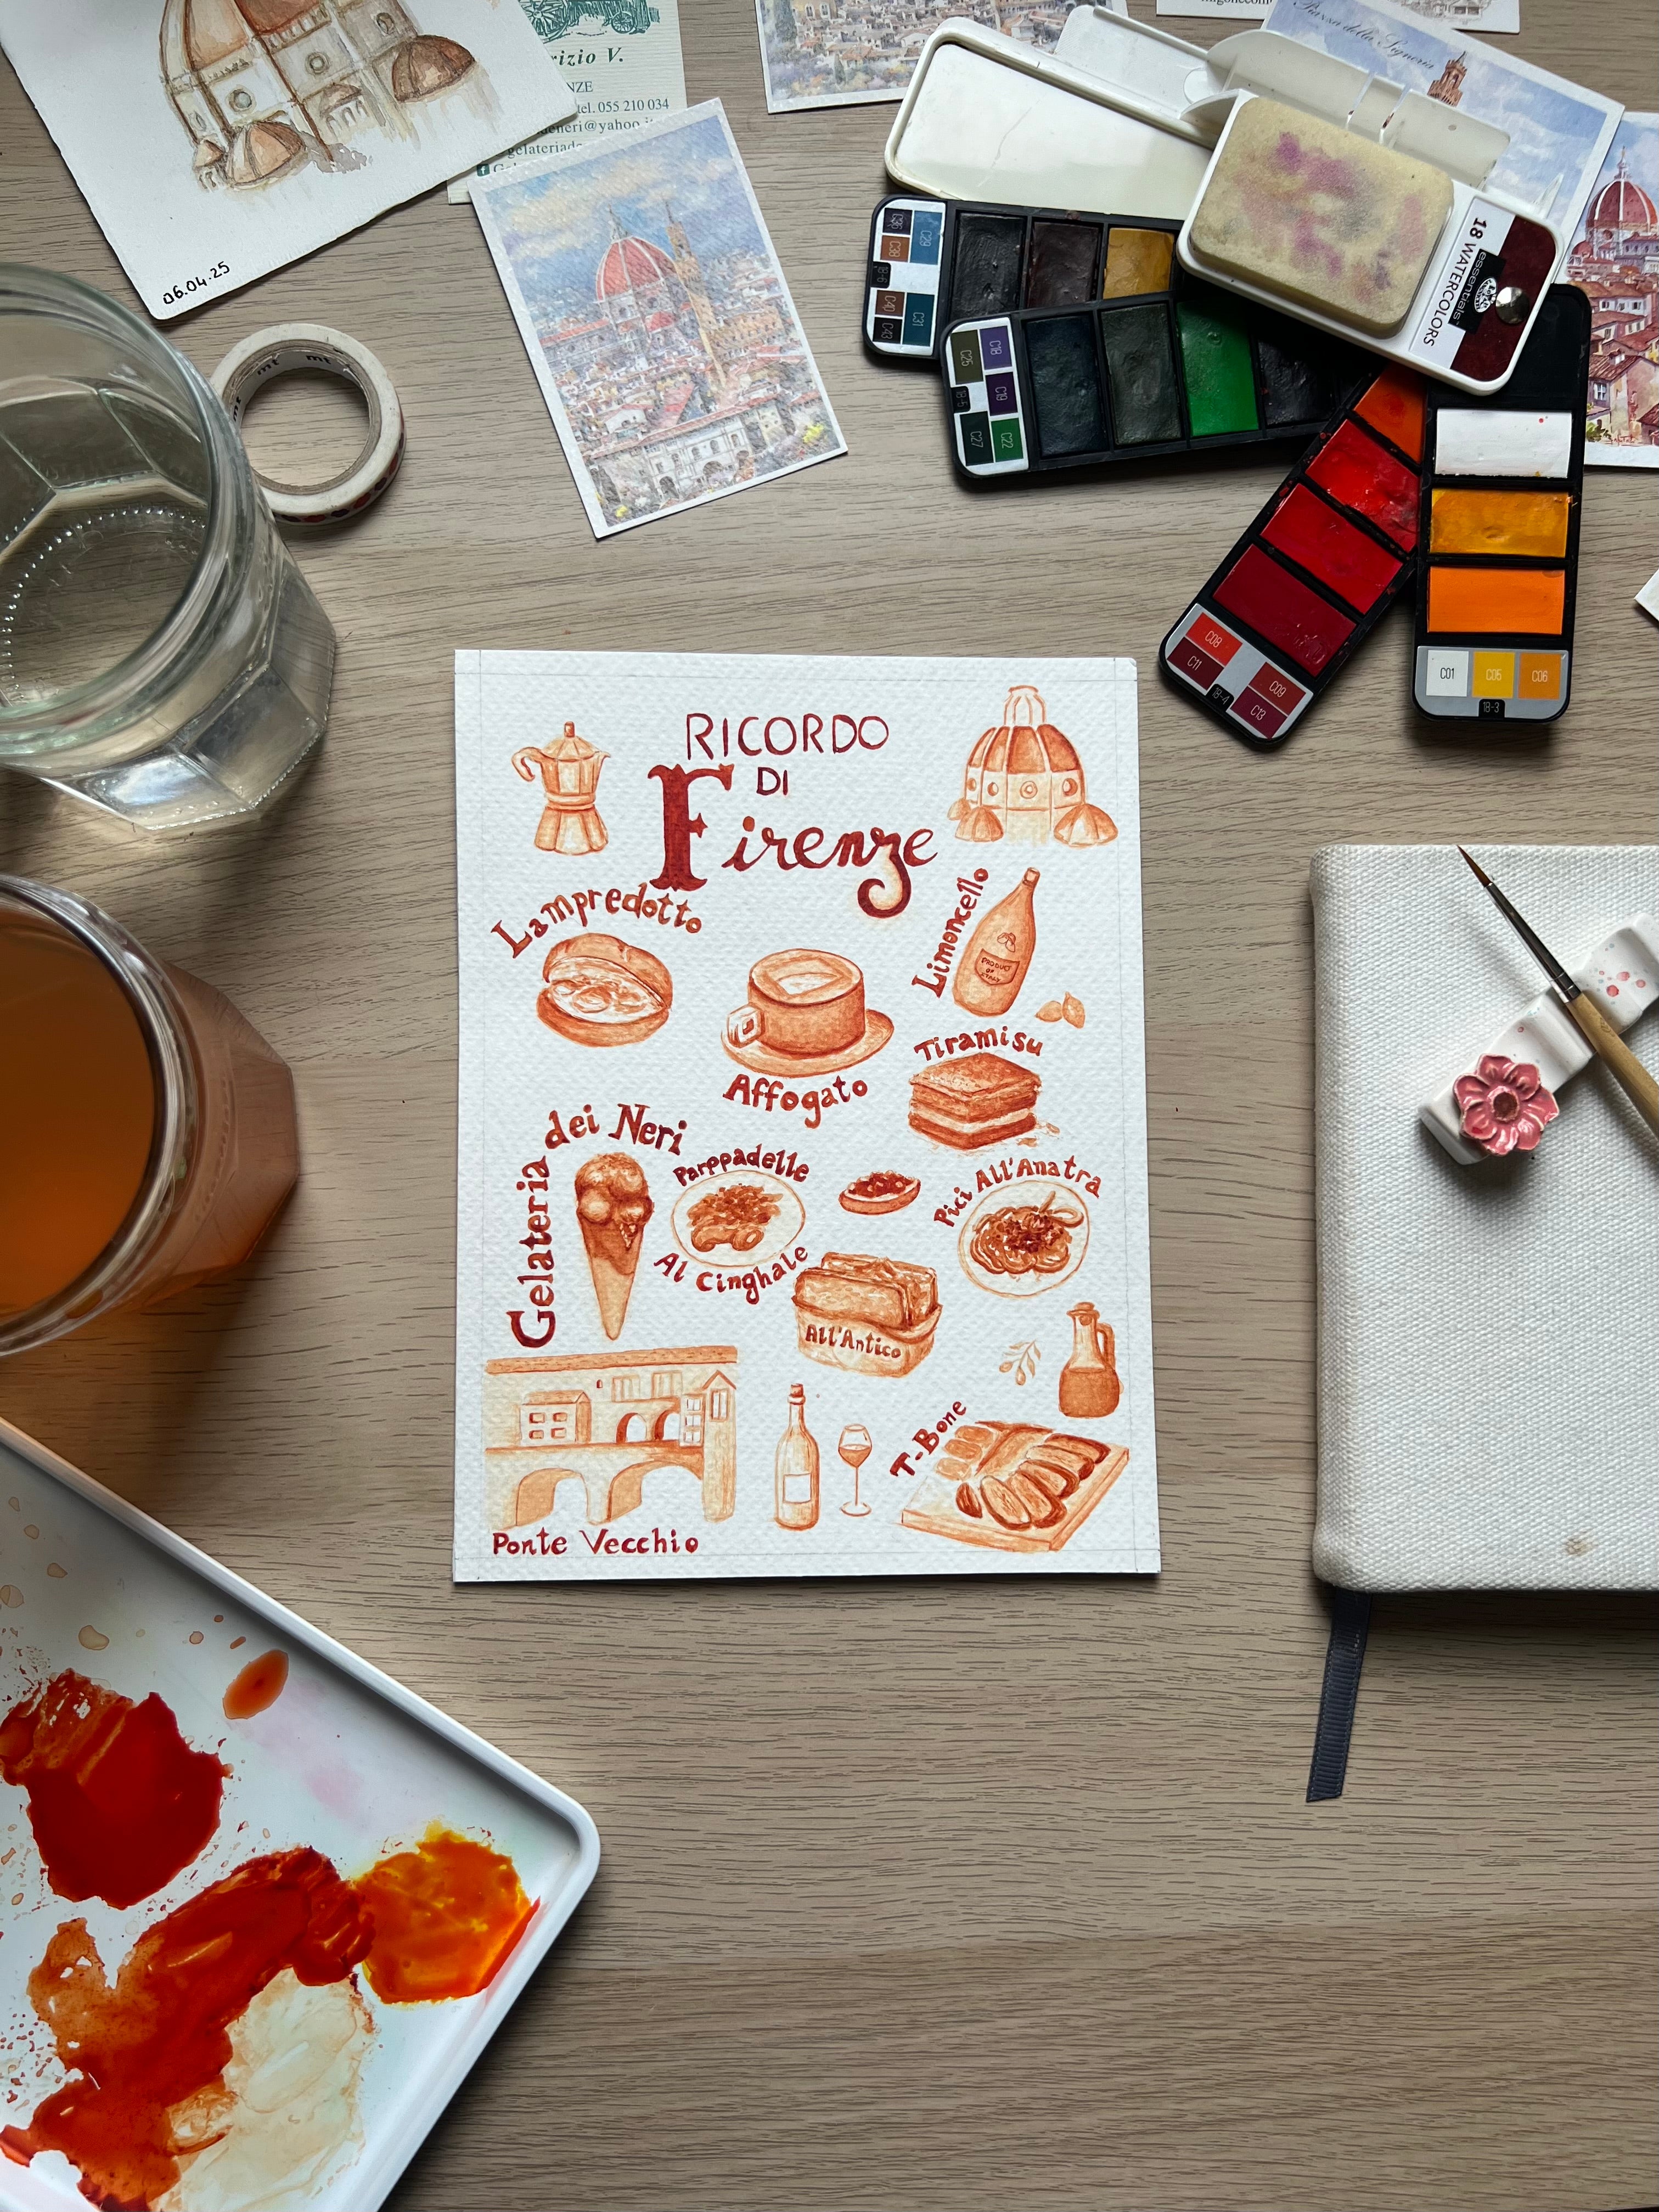 rizio V.
NZE
tel. 055 210 034
eneri@yahoo.it
gelateriad
Piazza della Signoria
06.04.25
mt
mt
essentials
18 WATERCOLORS
C29
C38
C40
C31
C43
C18
C25
C19
18-5
C27
C22
C08
C11
C09
18-4
C13
C01
C05
C06
18-3
RICORDO
DI
Firenze
Lampredotto
Limoncello
PRODUCT
OF
ITALY
Affogato
Tiramisu
Gelateria dei Neri
Parppadelle
Al Cinghale
Pici All'Anatra
All'Antico
T-Bone
Ponte Vecchio